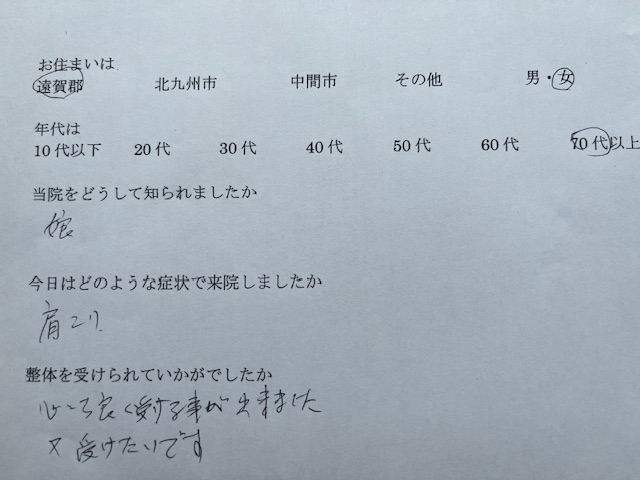 お住まいは
遠賀郡 北九州市 中間市 その他 男・女
年代は
10代以下 20代 30代 40代 50代 60代 70代以上
当院をどうして知られましたか
娘
今日はどのような症状で来院しましたか
肩こり
整体を受けられていかがでしたか
心ころ良く受ける事が出来ました
又受けたいです